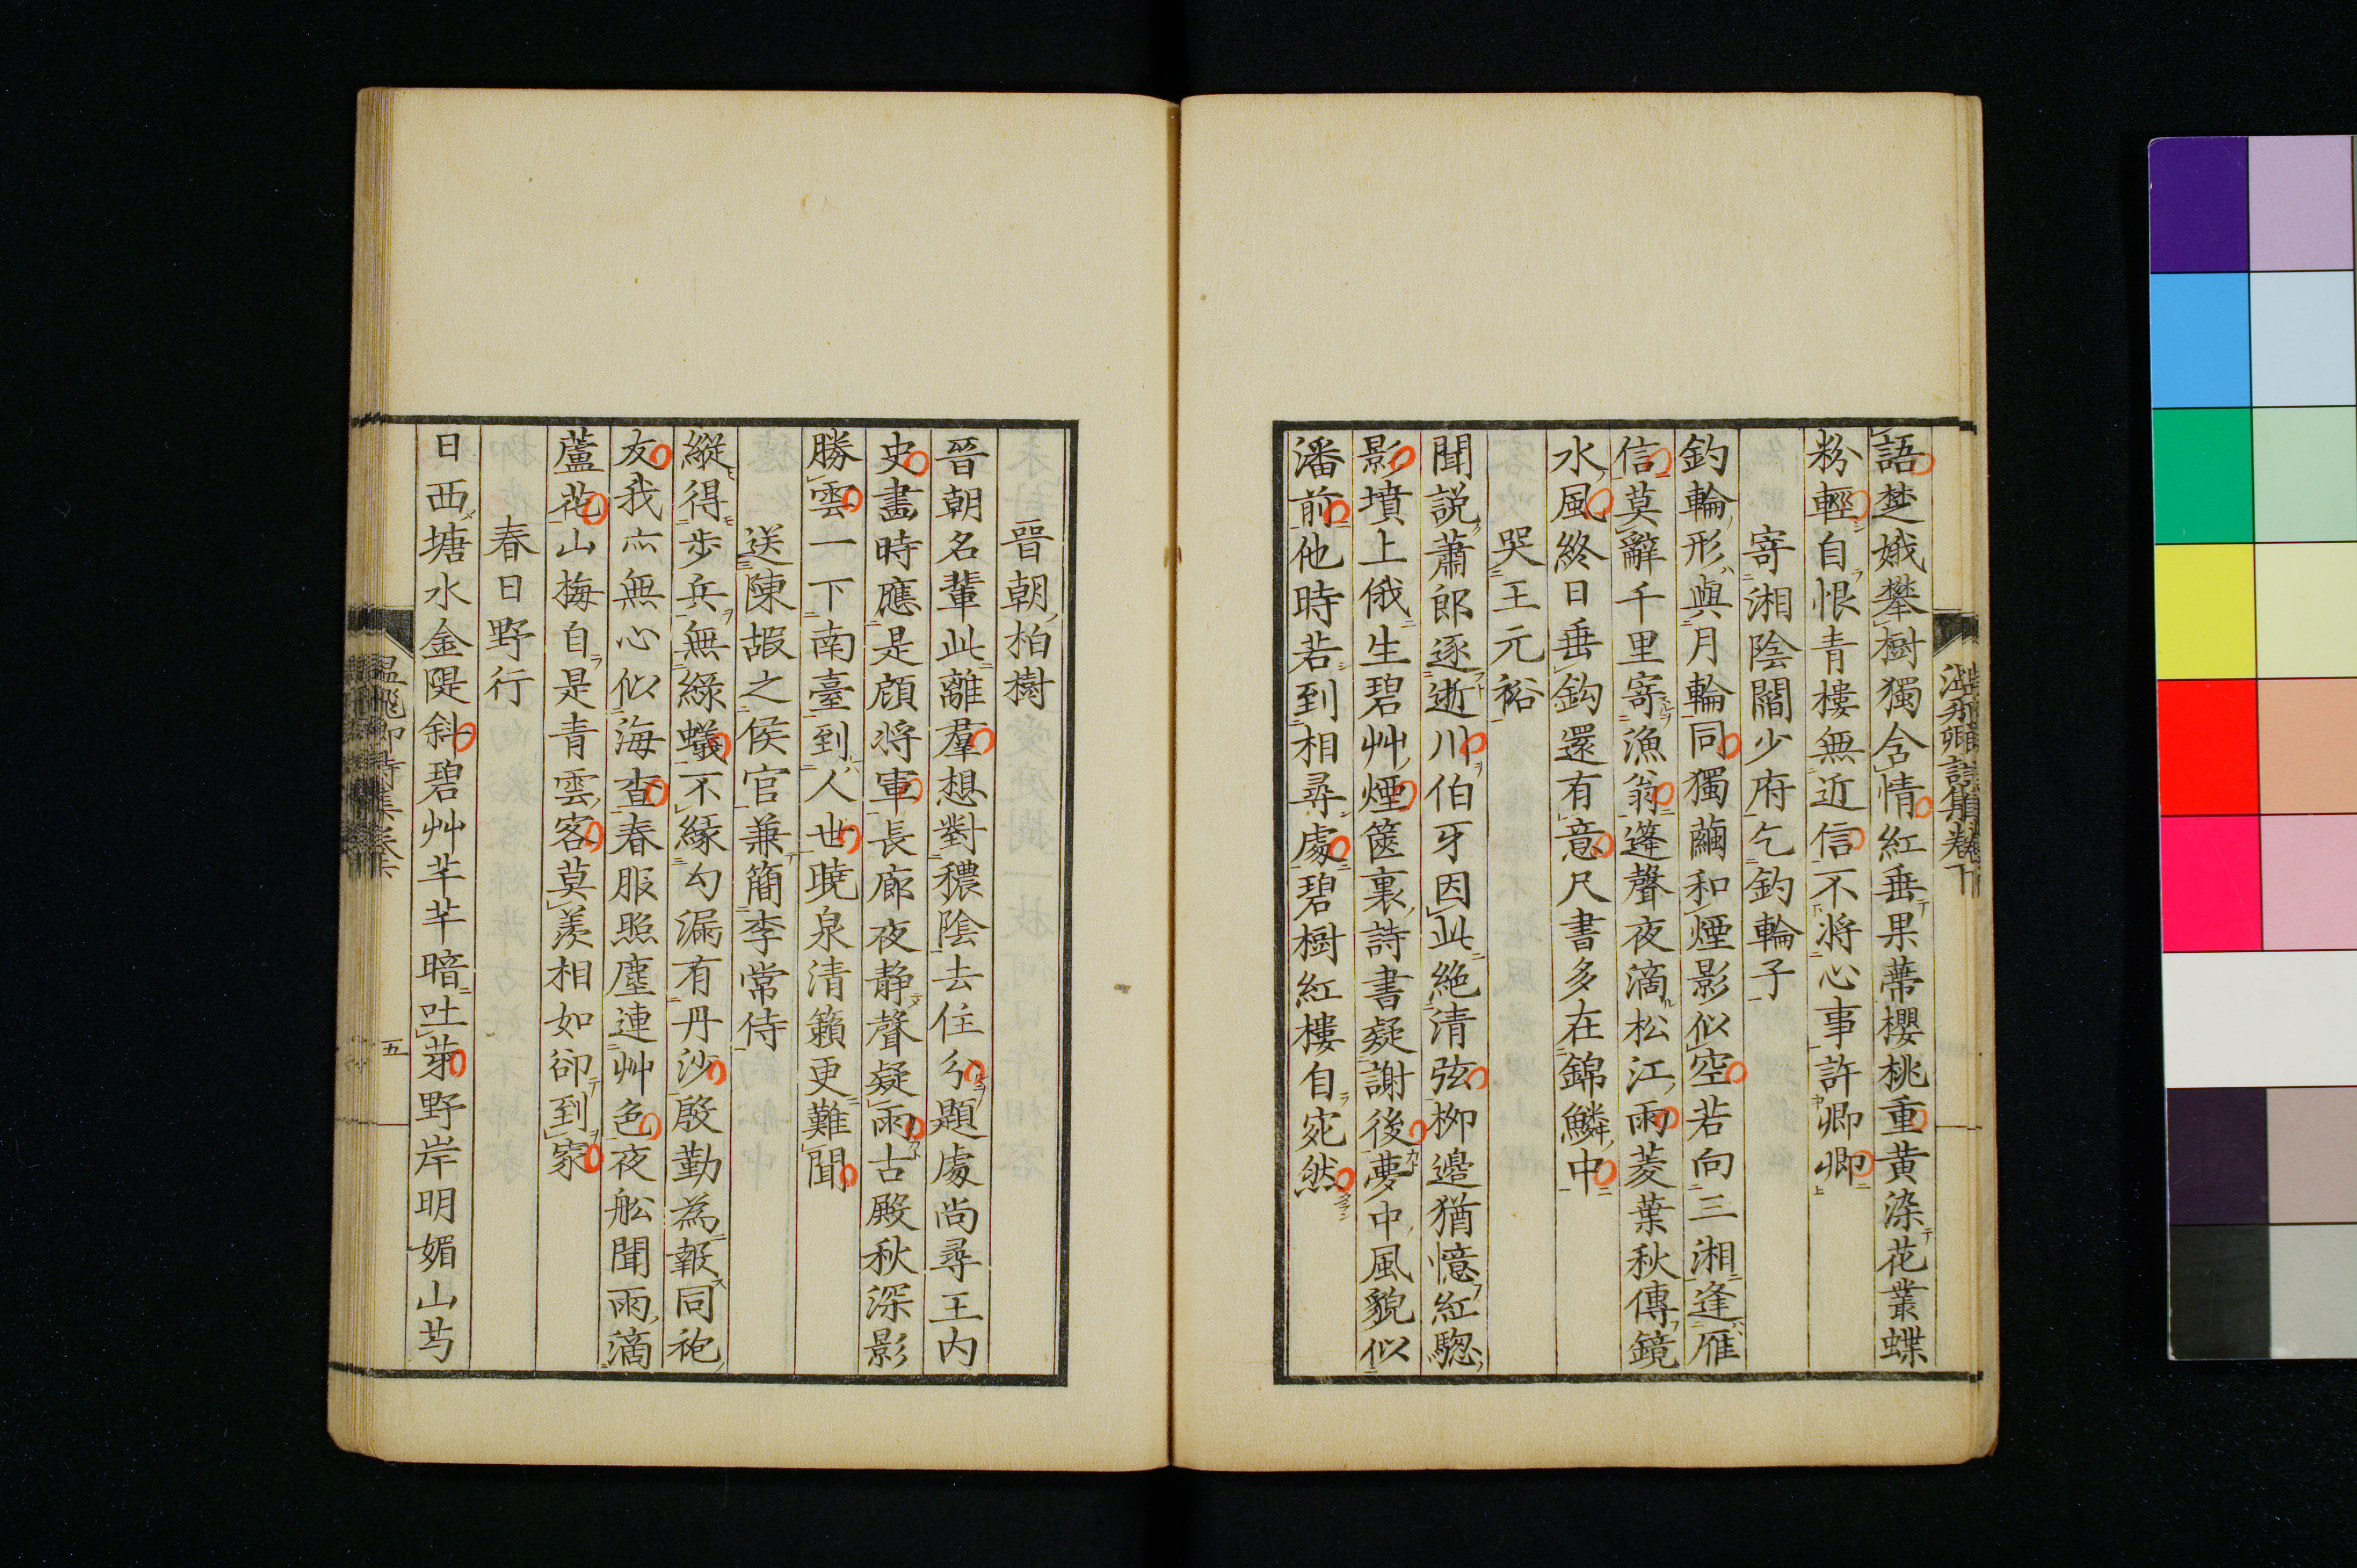 語楚娥攀樹獨含情紅垂果蔕櫻桃重黄染花叢蝶
粉輕自恨青樓無近信不將心事許卿卿
寄湘陰閻少府乞釣輪子
釣輪形與月輪同獨繭和煙影似空若向三湘逢雁
信莫辭千里寄漁翁蓬聲夜滴松江雨菱葉秋傳鏡
水風終日垂鈎還有意尺書多在錦鱗中
哭王元裕
聞説蕭郎逐逝川伯牙因此絶清弦柳邉猶憶紅驄
影墳上俄生碧艸煙篋裏詩書疑謝後夢中風貌似
潘前他時若到相尋處碧樹紅樓自宛然
晉朝柏樹
晉朝名輩此離羣想對穠陰去住分題處尚尋王内
史畫時應是顧將軍長廊夜静聲疑雨古殿秋深影
勝雲一下南臺到人世曉泉清籟更難聞
送陳嘏之侯官兼簡李常侍
縱得步兵無緑蟻不縁勾漏有丹沙殷勤為報同袍
友我亦無心似海查春服照塵連艸色夜舩聞雨滴
蘆花山梅自是青雲客莫羨相如卻到家
春日野行
日西塘水金隄斜碧艸芊芊暗吐芽野岸明媚山芍
温飛卿詩集卷下
五